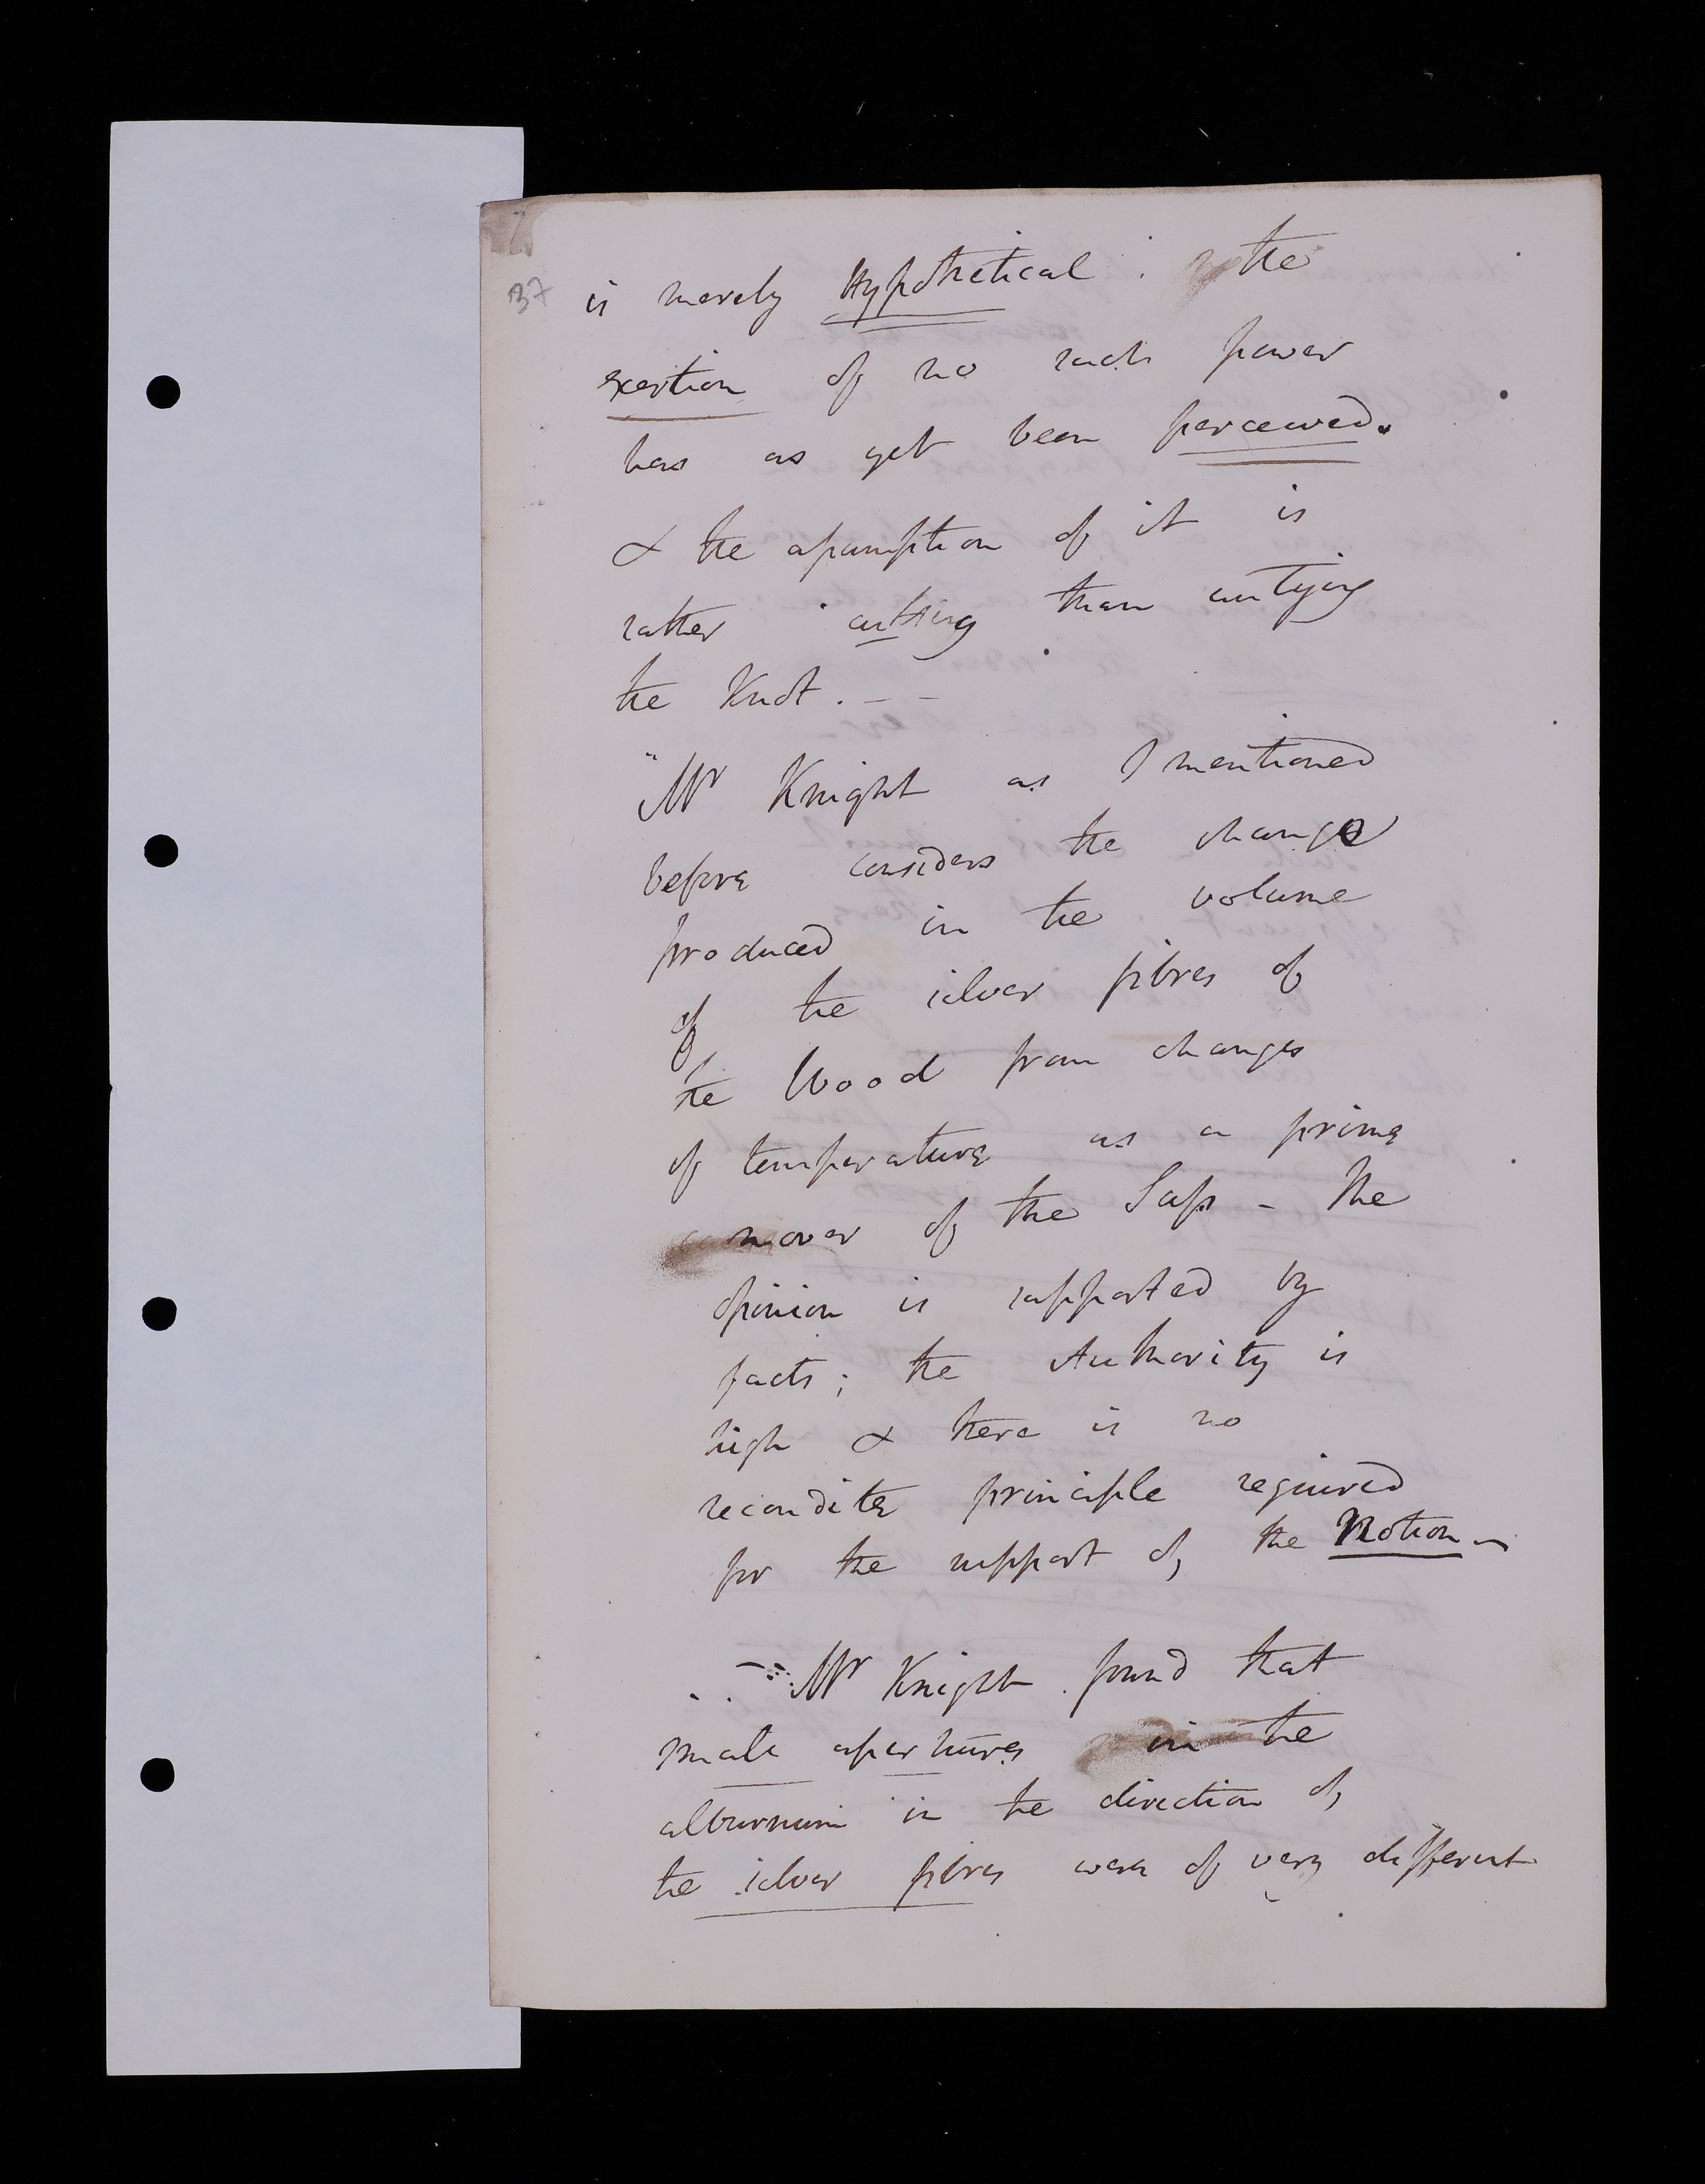 37
is merely Hypothetical : the
exertion of no such power
has as yet been perceived.
& the assumption of it is
rather cutting than untying
the Knot. - -
"Mr Knight as I mentioned
before considers the change
produced in the volume
of the silver fibres of
the Wood from changes
of temperature as a prime
mover of the Sap - The
opinion is supported by
facts; the Authority is
high & there is no
recondite principle required
for the support of the Notion -
Mr Knight found that
small apertures in the
alburnum in the direction of
the silver fibres were of very different